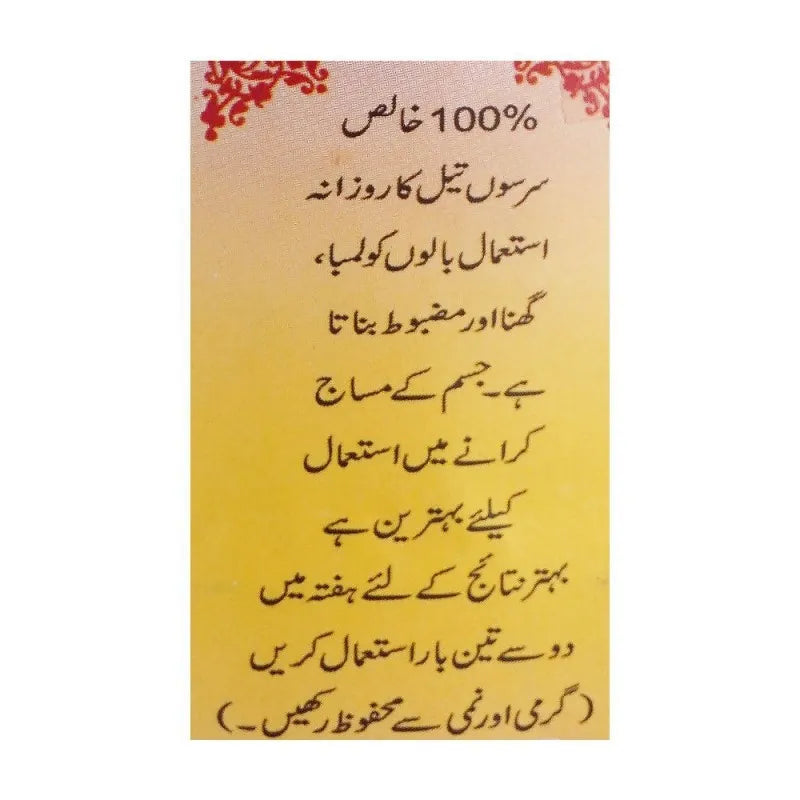 100% خالص
سرسوں تیل کا روزانہ
استعمال بالوں کو لمبا،
گھنا اور مضبوط بناتا
ہے۔ جسم کے مساج
کرانے میں استعمال
کیلئے بہترین ہے
بہتر نتائج کے لئے ہفتہ میں
دو سے تین بار استعمال کریں
(گرمی اور نمی سے محفوظ رکھیں۔)